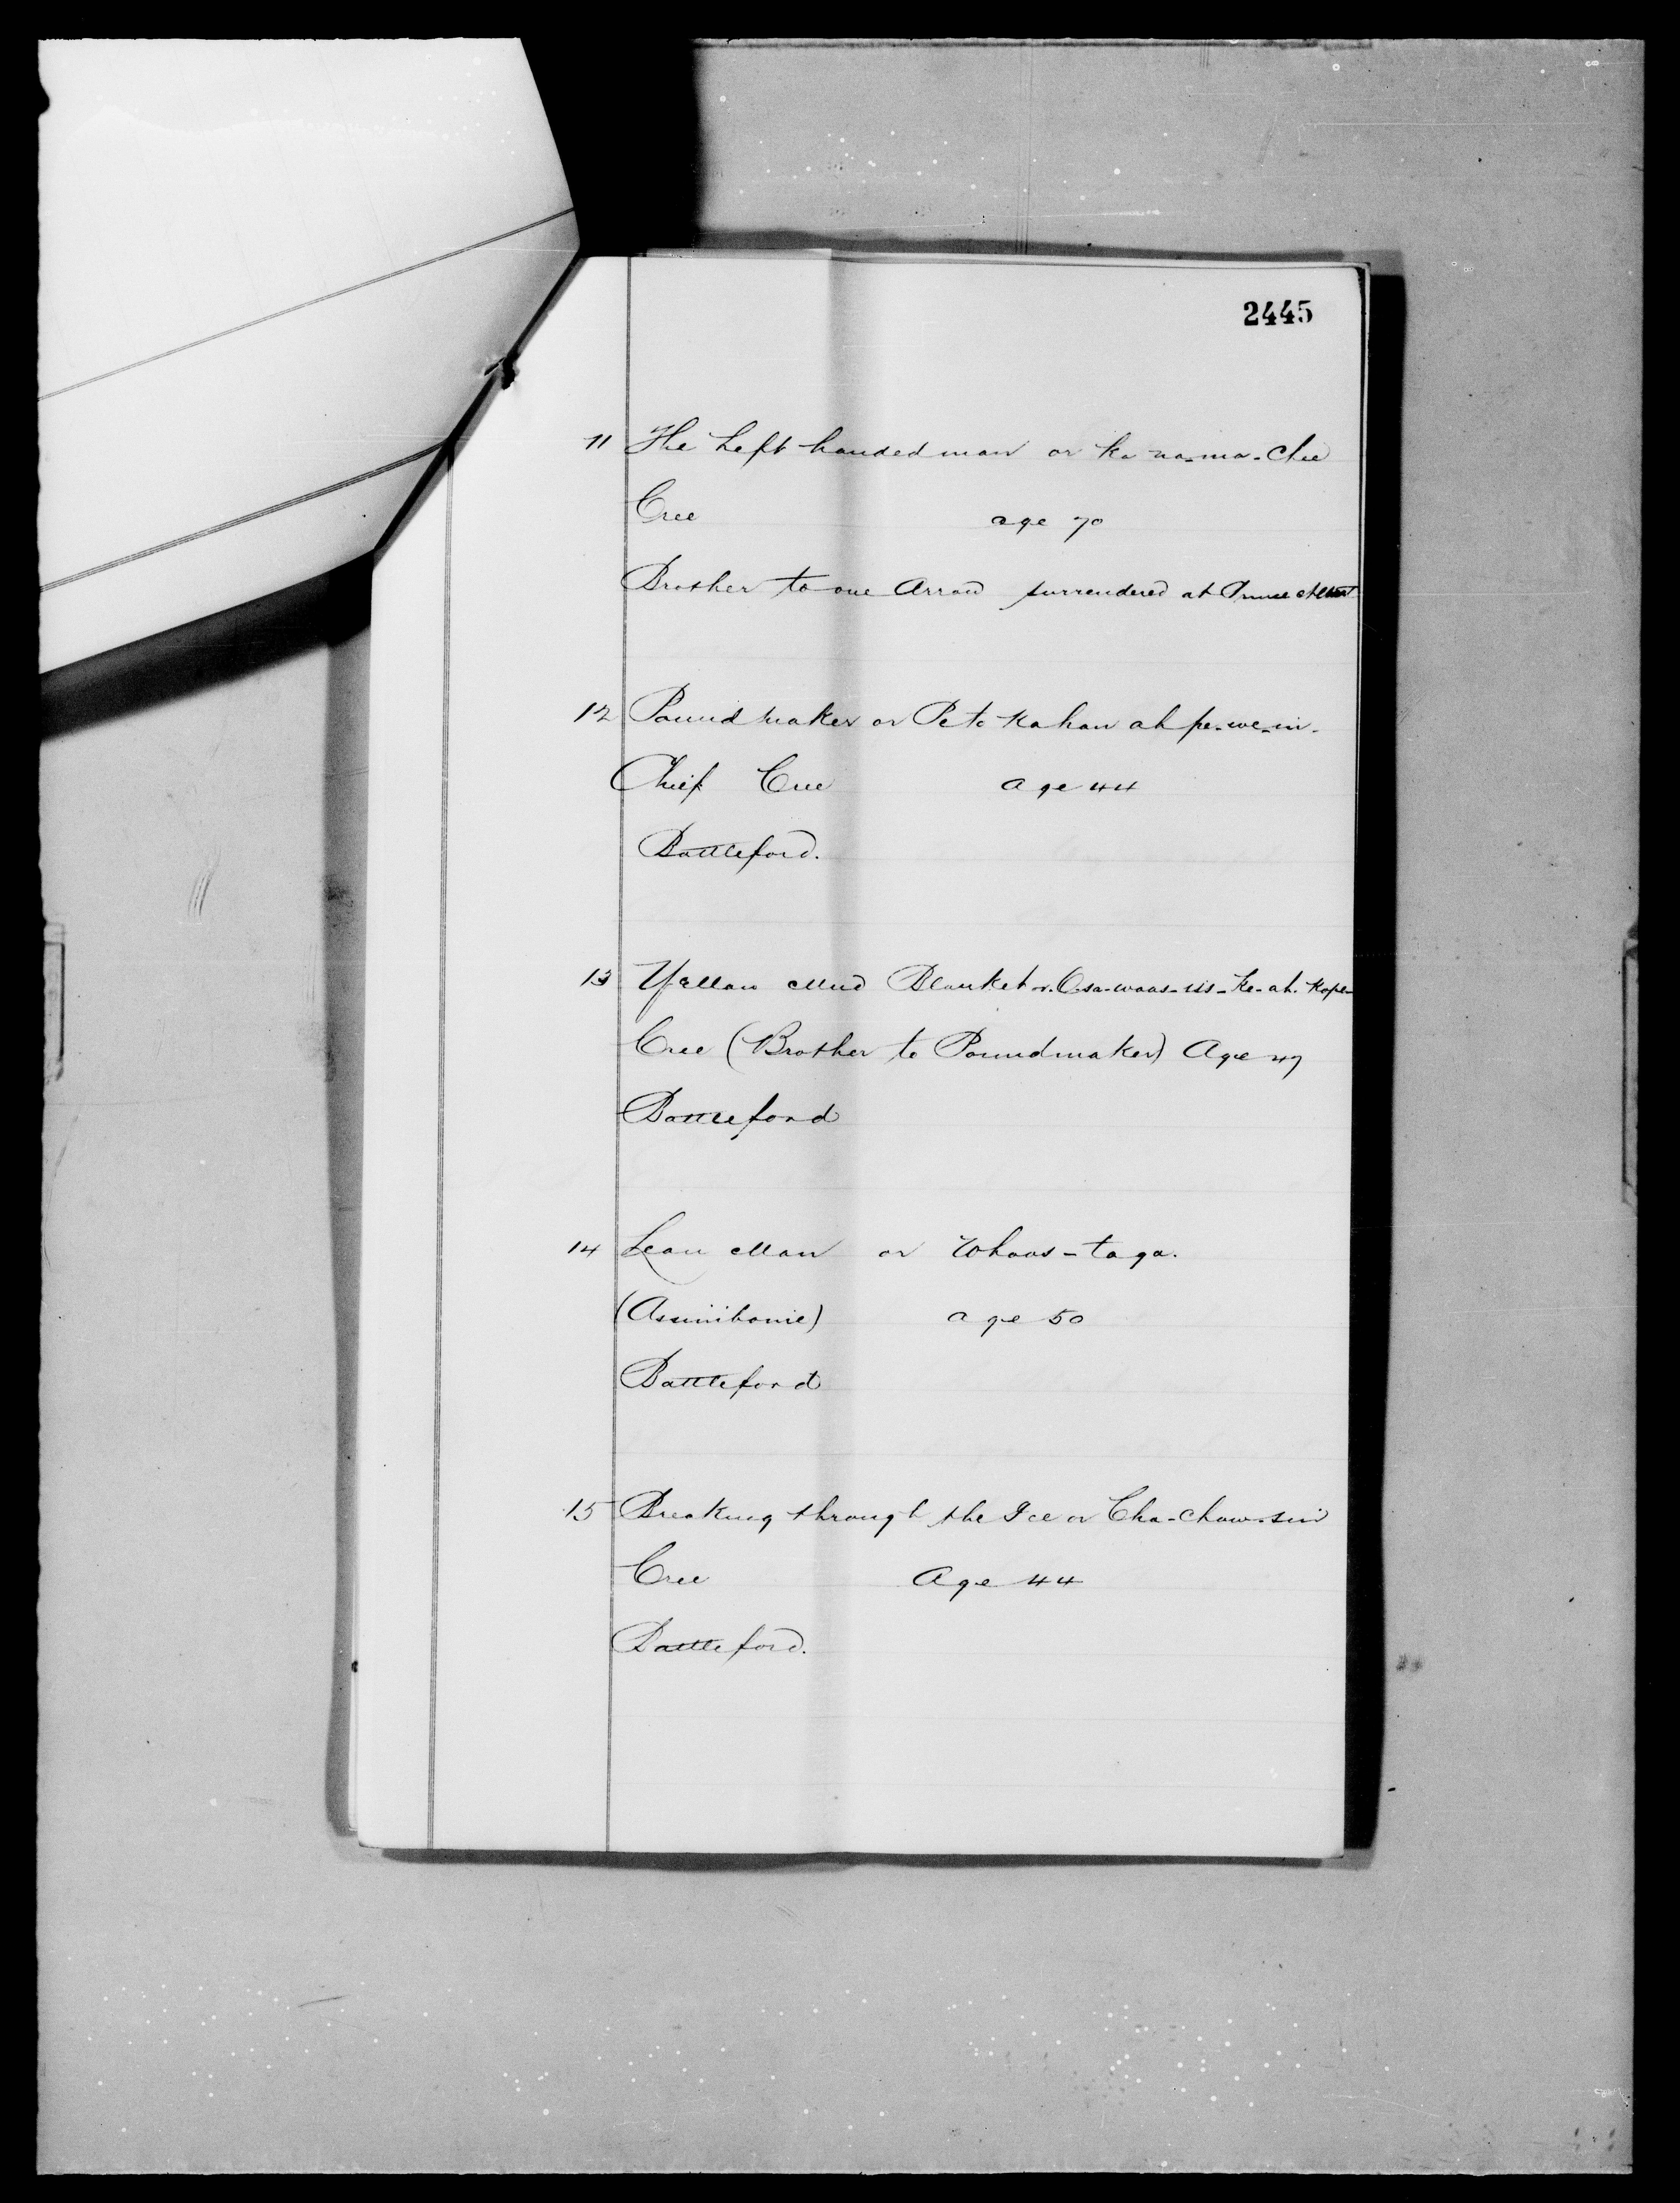 2445
11 The Left handed man or Ka-na-ma-chee
Cree age 70
Brother to one Arrow surrendered at Prince Albert
12 Poundmaker or Peto kahan ah pe-we-in-
Chief Cree age 44
Battleford.
13 Yellow Mud Blanket or Osa-waas-sis-Ke-ah-Kope-
Cree (Brother to Poundmaker) Age 47
Battleford
14 Lean Man or Whoas-taga.
(Assiniboine) age 50
Battleford
15 Breaking through the Ice or Cha-chow-sin
Cree Age 44
Battleford.